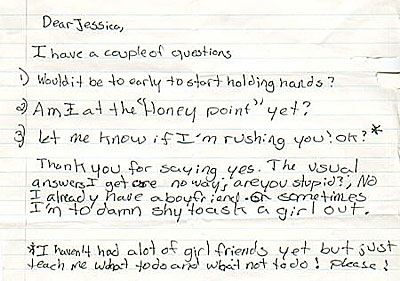 Dear Jessica,
I have a couple of questions
1) Would it be to early to start holding hands?
2) Am I at the "Honey point" yet?
3) Let me know if I'm rushing you! OK?*
Thank you for saying yes. The usual
answers I get are no way, are you stupid?, No
I already have a boyfriend. Or sometimes
I'm to damn shy to ask a girl out.
*I haven't had alot of girl friends yet but just
teach me what to do and what not to do! please!